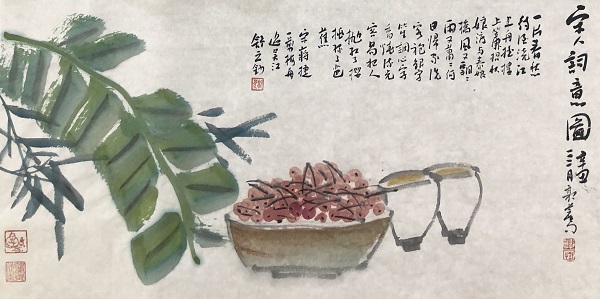 宋人詞意圖
一片春愁
待酒浇江
上舟摇樓
上簾招秋
娘渡与泰娘
橋風又飄飄
雨又蕭蕭何
日歸家洗
客袍銀字
笙調心字
香燒流光
容易把人
抛紅了櫻
桃绿了芭
蕉
宋蔣捷
一剪梅舟
過吴江